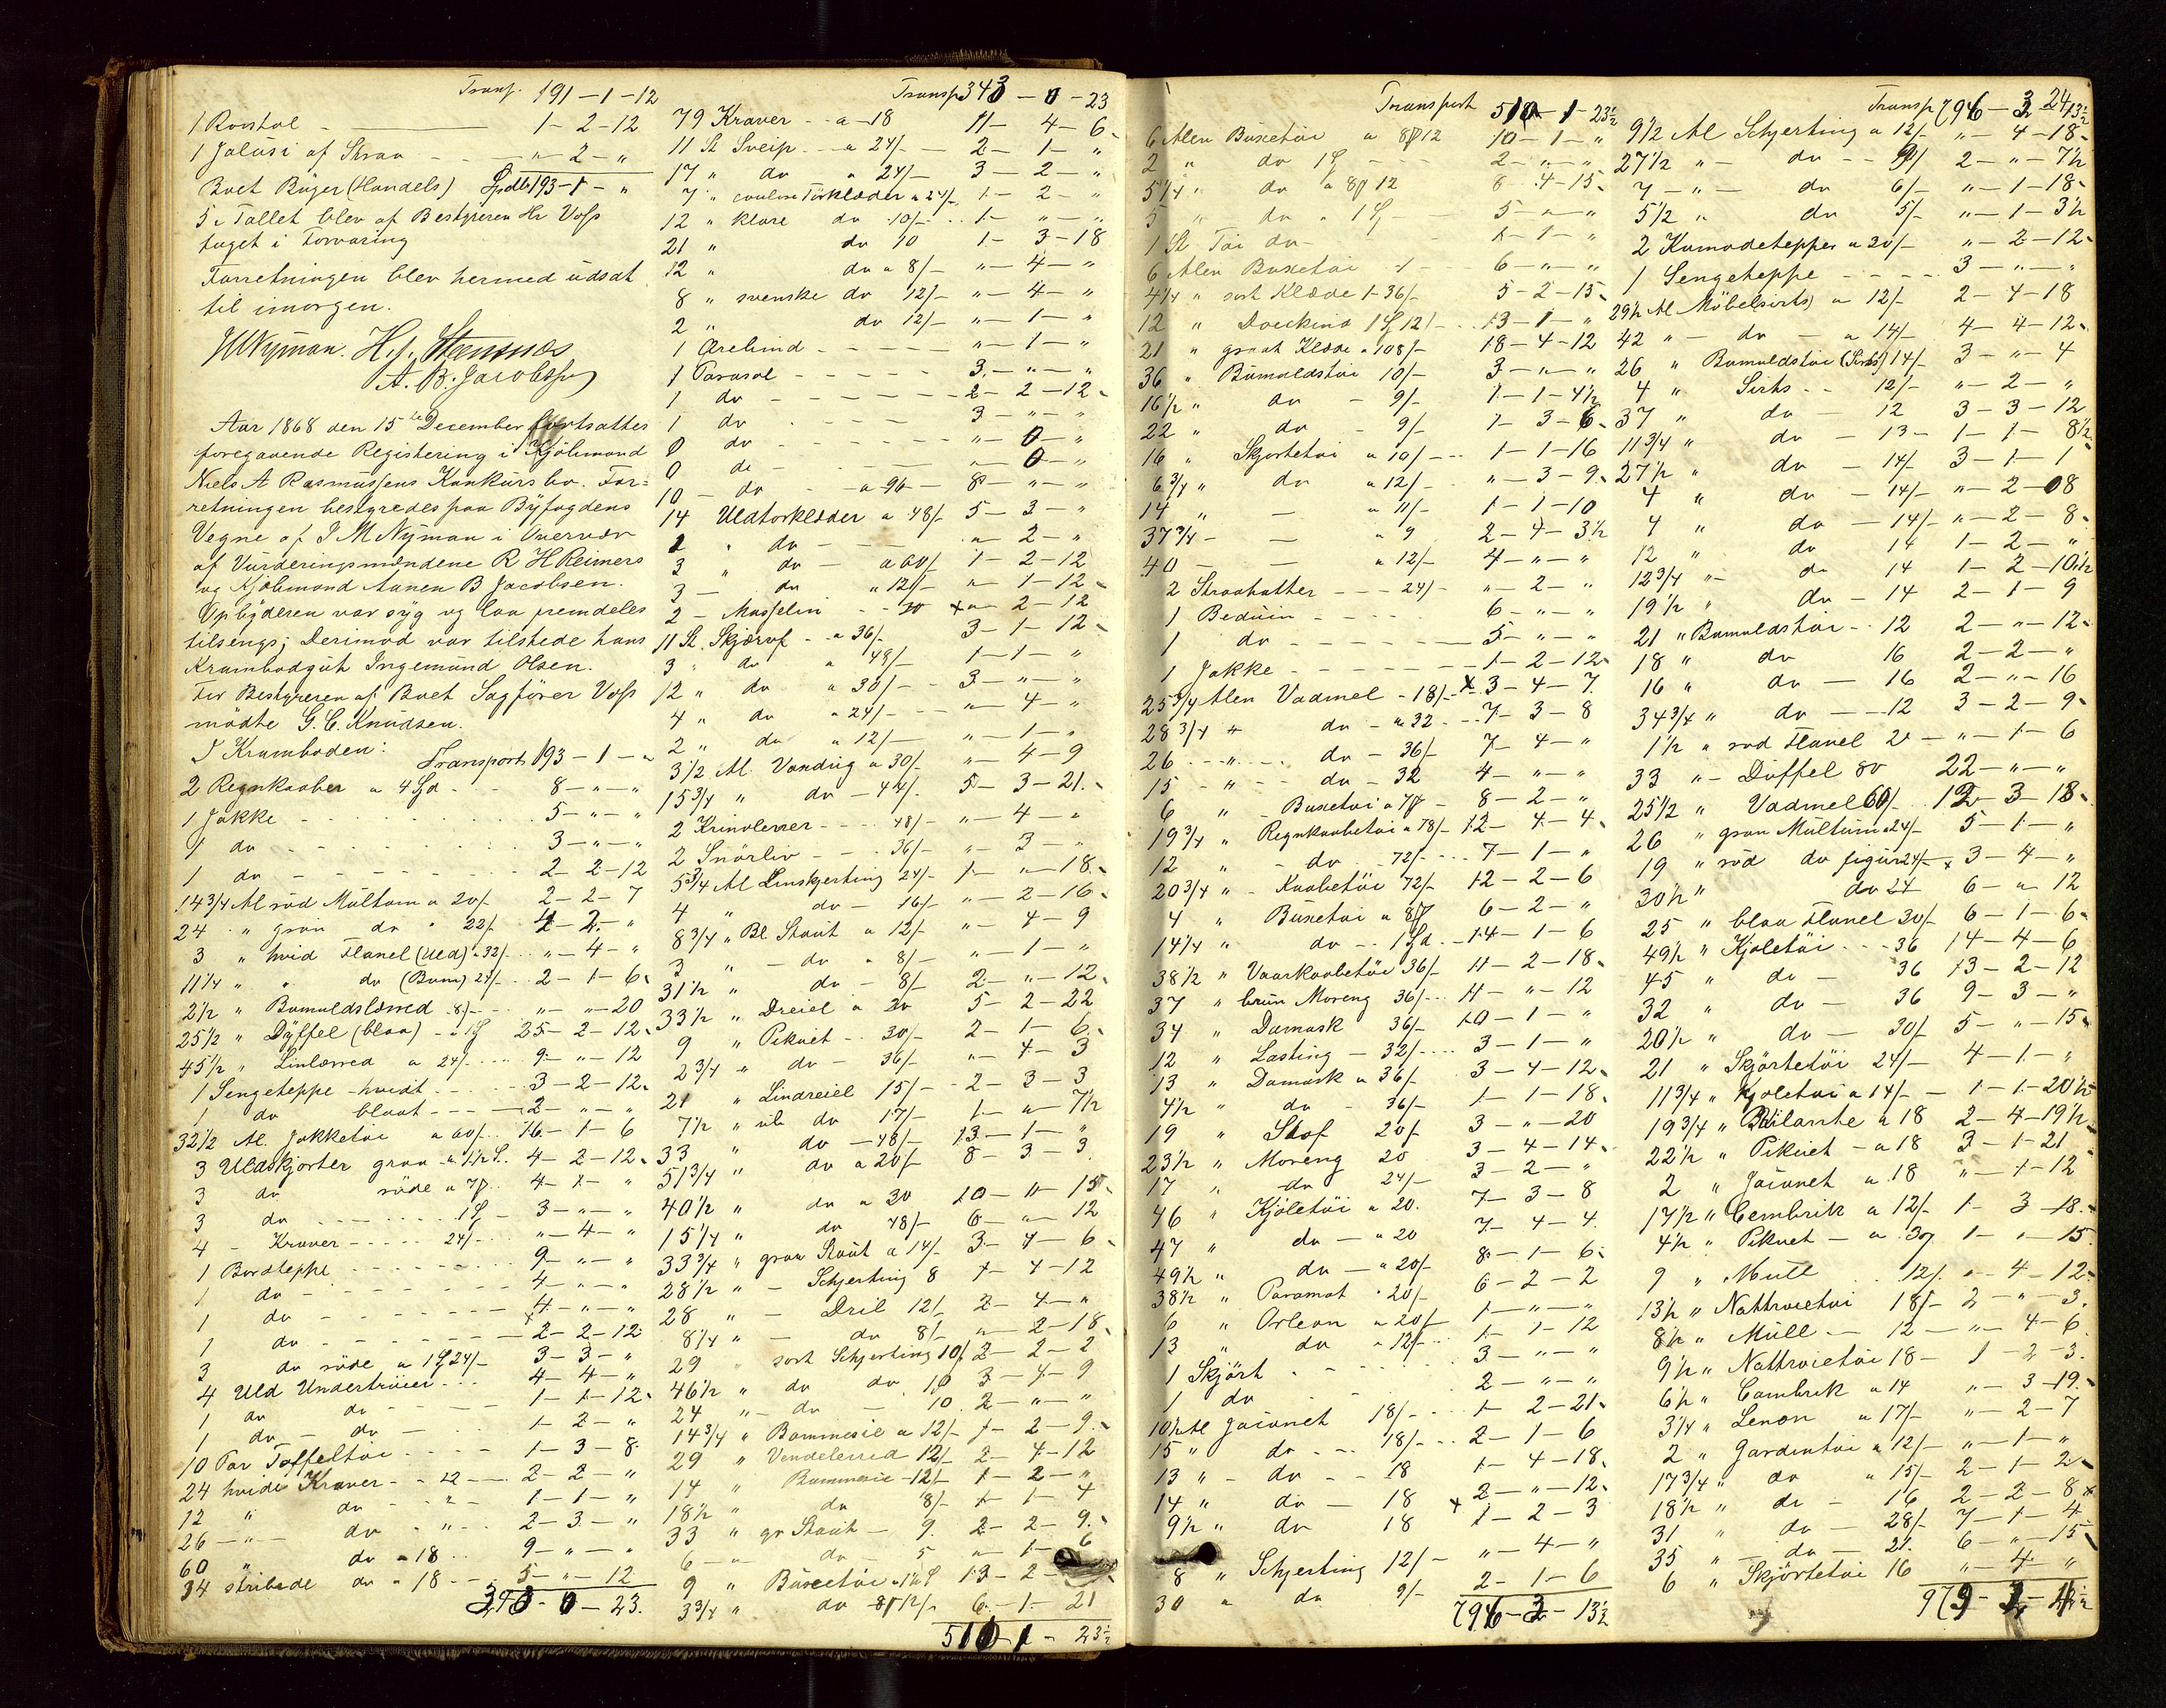 Transp. 191-1-12
1 Rostol - 1-2-12
1 Jalusi af Straa - - „-2-„
Boet Böger (Handels) Spdlr 193-1-„
5 i Tallet blev af Bestyreren Hr Voss
taget i Forvaring
Forretningen blev hermed udsat
til imorgen.
JMNyman. H. J. Stamnes
A. B. Jacobsen
Aar 1868 den 15de December fortsattes
foregaaende Registering i Kjöbmand
Niels A Rasmussens Konkursbo. For=
retningen bestyredes paa Byfogdens
Vegne af J M Nyman i Overvær
af Vurderingsmændene R H Reimers
og Kjöbmand Aanen B Jacobsen.
Opbyderen var syg og laa fremdeles
tilsengs; Derimod var tilstede hans
Krambodgut Ingemund Olsen.
For Bestyreren af Boet Sagförer Voss
mödte G. C. Knudsen.
I Kramboden:
Transport 193-1-„
2 Regnkaaber a 4 Spd - 8-„-„
1 Jakke - - - 5-„-„
1 do - - - 3-„-„
1 do - - - 2-2-12
14 3/4 Al röd Multum a 20/- 2-2-7
24 „ grön do „ 22/- 4-2-„
3 „ hvid Flanel (Uld) a 32/- „-4-„
11 1/4 „ „ do (Bom) 24/- 2-1-6
2 1/2 „ Bomuldslærred 8/- „-„-20
25 1/2 „ Dyffel (blaa) - 1 S 25-2-12
45 1/2 „ Linlærred a 24/- 9-„-12
1 Sengeteppe hvidt - 3-2-12
1 do blaat - - - 2-„-„
32 1/2 Al. Jakketöi a 60/- 16-1-6
3 Uldskjorter graa a 1 1/2 S. 4-2-12
3 do röde a 7 4-1-„
3 do - - - 1 S - 3-„-„
4 - Kraver - - 24/- „-4-„
1 Bordteppe - - - 9-„-„
1 do - - - 4-„-„
1 do - - - 4-„-„
1 do - - - 2-2-12
3 do röde a 1 S 24/- 3-3-„
4 Uld Undertröier - 4-4-„
1 do do - - 1-1-12
1 do - do - 1-2-„
10 Par Töffeltöi - - 1-3-8
24 hvide Kraver - a 12 - 2-2-„
12 „ do - „ - 1-1-„
26 -„- do „ - 2-3-„
60 „ do a 18 - 9-„-„
34 stribede do a 18 - 5-„-12
343-0-23.
Transp 343-0-23
79 Kraver - a 18 11-4-6
11 St Sveip - a 24/- 2-1-„
17 „ do a 24/- 3-2-„
7 „ coulörte Törklæder a 24/- 1-2-„
12 „ klare do 10/- 1-„-„
21 „ do 10 1-3-18
12 „ do a 8/- „-4-„
8 „ svenske do 12/- „-4-„
2 „ do 12/- „-1-„
1 Ørebind - - - „-1-„
1 Parasol - - - 3-„-„
1 do - - - 2-2-12
1 do - - - 3-„-„
0 do - - - „-0-„
0 do - - - „-0-„
10 - do - a 96 - 8-„-„
14 Uldtörklæder a 48/- 5-3-„
1 „ do - - „-2-„
3 „ do - a 60/- 1-2-12
3 - do „ 12/- „-1-12
2 - Musselin - 30 x „-2-12
11 St. Skjærf - a 36/- 3-1-12
3 „ do a 48/- 1-1-„
12 „ do a 30/- 3-„-„
4 „ do a 24/- „-4-„
2 „ do a 12/- „-1-„
3 1/2 Al. Vandug a 30/- „-4-9
15 3/4 „ do - 44/- 5-3-21
2 Krinoliner - - 48/- „-4-„
2 Snörliv - - 36/- „-3-„
5 3/4 Al Linskjerting 24/- 1-„-18
4 „ do - 16/- „-2-16
8 3/4 „ Bl Stout a 12/- „-4-9
3 „ - do a 8/- „-1-„
31 1/2 „ do - 8/- 2-„-12
33 1/2 „ Dreiel a 20 5-2-22
9 „ Pikuet - 30/- 2-1-6
2 3/4 „ do - 36/- „-4-3
21 „ Lindreiel 15/- 2-3-3
7 1/2 „ ubl do 17/- 1-„-7 1/2
33 „ do - 48/- 13-1-„
51 3/4 „ do a 20/- 8-3-3
40 1/2 „ do a 30 10-„-15
15 1/4 „ do 48/- 6-„-12
33 3/4 „ graa Stout a 14/- 3-4-6
28 1/2 „ - Schjerting 8 1-4-12
28 „ - Dril 12/- 2-4-„
8 1/4 „ - do 8/- „-2-18
29 „ sort Schjerting 10/- 2-2-2
46 1/2 „ do do 10 3-4-9
24 „ - do - 10 2-„-„
14 3/4 „ Bommesie a 12/- 1-2-9
29 „ Vendelerred 12/- 2-4-12
14 „ Bommesie 12/- 1-2-„
18 1/2 „ do 8/- 1-1-4
33 „ gr Stout - 9. 2-2-9
6 -„- do - 5 „-1-6
9 „ Buxetöi a 1 1/2 S 13-2-
3 3/4 „ do 8 12/- 6-1-21
510-1-23 1/2
Transport 510-1-23 1/2
6 Alen Buxetöi a 8 12 10-1-„
2 „ do 1 S - - 2-„-„
5 1/4 „ do a 8 12 8-4-15
5 „ do a 1 S - 5-„-„
1 St Töi do - - 1-1-„
6 Alen Buxetöi 1 - 6-„-„
4 1/4 „ sort Klæde 1-36/- 5-2-15
12 „ Doeskind 1 S 12/- 13-1-„
21 „ graat Klæde a 108/- 18-4-12
36 „ Bomuldstöi 10/- 3-„-„
16 1/2 „ do - 9/- 1-1-4 1/2
22 „ do - 9/- 1-3-6
16 „ Skjortetöi a 10/- 1-1-16
6 3/4 „ do a 12/- „-3-9
14 „ - a 11/- 1-1-10
37 3/4 - - a 9 2-4-3 1/2
40 - - a 12/- 4-„-„
2 Straahatter - - 24/- „-2-„
1 Beduin - - - 6-„-„
1 do - - - 5-„-„
1 Jakke - - - 1-2-12
25 3/4 Alen Vadmel - 18/- x 3-4-7
28 3/4 „ do - a 32 - 7-3-8
26 -„- do - 36/- 7-4-„
15 -„- do - 32 4-„-„
6 „ - Buxetöi a 7 - 8-2-„
19 3/4 „ Regnkaabetöi a 78/- 12-4-4
12 „ - do - 72/- 7-1-„
20 3/4 „ - Kaabetöi 72/- 12-2-6
4 „ Buxetöi a 8 6-2-„
14 1/4 „ do - 1 Spd. - 14-1-6
38 1/2 „ Vaarkaabetöi 36/- 11-2-18
37 „ brun Moreng 36/- 11-„-12
34 „ Damask 36/- 10-1-„
12 „ Lasting - 32/- 3-1-„
13 „ Damask a 36/- 3-4-12
4 1/2 „ do - 36/- 1-1-18
19 „ Stof 20/- 3-„-20
23 1/2 „ Moreng 20 3-4-14
17 „ do 24/- 3-2-„
46 „ Kjoletöi a 20. 7-3-8
47 „ do - a 20 7-4-4
49 1/2 „ do - a 20/- 8-1-6
38 1/2 „ Paramat „ 20/- 6-2-2
6 „ Orlean a 20/- 1-„-„
13 „ do a 12/- 1-1-12
1 Skjört - - - 3-„-„
1 do - - 2-„-„
10 1/2 Al Jaconet 18/- 1-2-21
15 „ do - - 18/- 2-1-6
13 „ - do - - 18 1-4-18
14 „ do - 18 x 2-„-12
9 1/2 „ do 18 1-2-3
8 „ Schjerting 12/- „-4-„
30 „ do 9/- 2-1-6
796-3-13 1/2
Transp 796-3-13 1/2
9 1/2 Al Schjerting a 12/- „-4-18
27 1/2 „ - do - - 9/- 2-„-7 1/2
7 -„- do 6/- „-1-18
5 1/2 „ do 5/- „-1-3 1/2
2 Komodetepper a 30/- „-2-12
1 Sengeteppe - - - 3-„-„
29 1/2 Al Möbelsirts a 12/- 2-4-18
42 „ - do - a 14/- 4-4-12
26 „ Bomuldstöi (Sirts) 14/- 3-„-4
4 „ Sirts - 12/- „-2-„
37 „ do - 12 3-3-12
11 3/4 „ do - 13 - 1-1-8 1/2
27 1/2 „ do - 14/- 3-1-1
4 „ do - 14/- „-2-8
4 „ do - 14/- „-2-8
12 „ do 14 1-2-„
12 3/4 „ - do 14 1-2-10 1/2
19 1/2 „ do - 14 2-1-9
21 „ Bomuldstöi - 12 2-„-12
18 „ do 16 2-2-„
16 „ do - 16 2-„-16
34 3/4 „ do - - 12 3-2-9
1 1/2 „ röd Flanel 20 - „-1-6
33 „ - Duffel 80 22-„-„
25 1/2 „ Vadmel 60/- 12-3-18
26 „ grøn Multum a 24/- 5-1-„
19 „ röd do figur 24/- x 3-4-„
30 1/2 „ do 24 6-„-12
25 „ blaa Flanel 30/- 6-1-6
49 1/2 „ Kjoletöi - - 36 14-4-6
45 „ do - 36 13-2-12
32 „ do - 36 9-3-„
20 1/2 „ do - 30/- 5-„-15
21 „ Skjörtetöi 24/- 4-1-„
11 3/4 „ Kjoletöi a 14/- - 1-1-20 1/2
19 3/4 „ a 18 2-4-19 1/2
22 1/2 „ Pikuet - a 18 3-1-21
2 „ Jaconet a 18 „-1-12
17 1/2 „ Cembrik a 12/- 1-3-18
4 1/2 „ Pikuet - a 30 1-„-15
9 „ Mull 12/- „-4-12
13 1/2 „ Nattroietöi 18/- 2-„-3
8 1/2 „ Mull - 12 - „-4-6
9 1/2 „ Nattroietöi 18 - 1-2-3
6 1/2 „ Cambrik a 14 „-3-19
3 1/4 „ Lenon a 17/- „-2-7
2 „ Gardintöi a 12/- „-1-„
17 3/4 „ do a 15/- 2-1-2
18 1/2 „ do - 16 2-2-8
31 „ do - 28/- 7-1-4
35 „ - do - 21. 6-„-15
6 „ Skjörtetöi 16 „-4-„